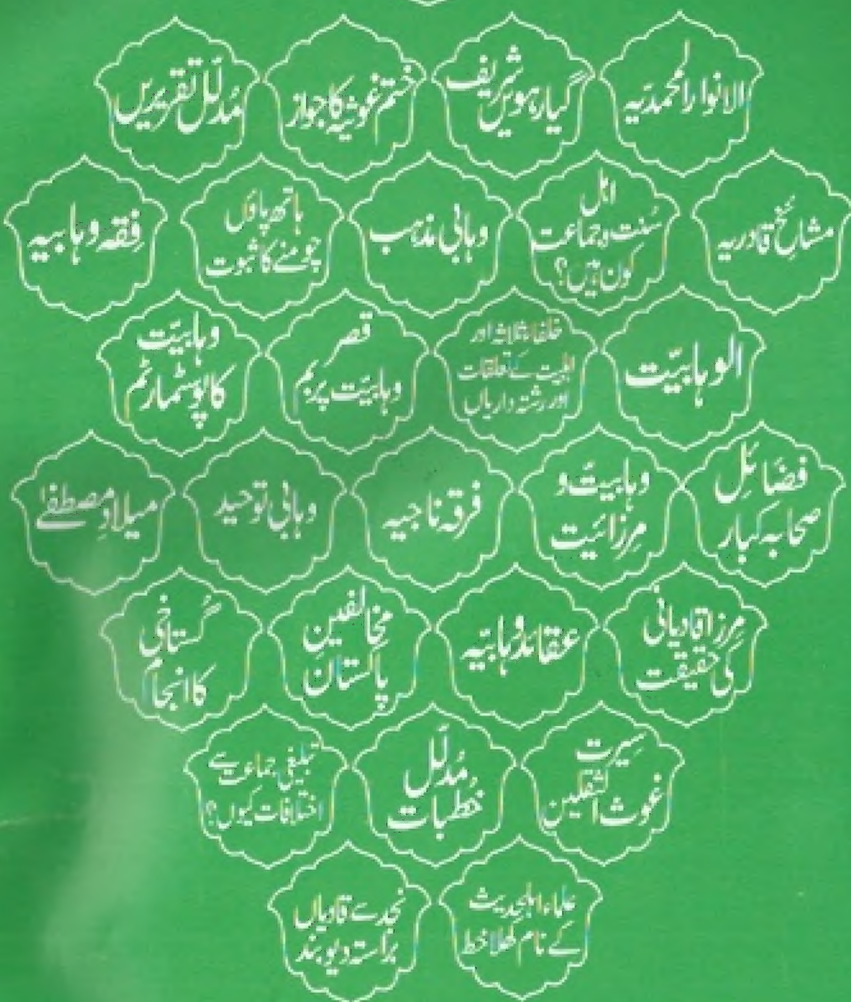 الانوار المحمدیہ
گیارہویں شریف
ختم غوثیہ کا جواز
مُدلّل تقریریں
مشائخ قادریہ
اہل
سُنت وجماعت
کون ہیں؟
وہابی مذہب
ہاتھ پاؤں
چومنے کا ثبوت
فِقہ وہابیہ
الوہابیّت
خلفاء ثلاثہ اور
اہلبیت کے تعلقات
اور رشتہ داریاں
قصر
وہابیّت پر بم
وہابیّت
کا پوسٹمارٹم
فضائل
صحابہ کبار
وہابیت و
مرزائیت
فرقہ ناجیہ
وہابی توحید
میلادِ مصطفےٰ
مرزا قادیانی
کی حقیقت
عقائد وہابیّہ
مخالفینِ
پاکستان
گستاخی
کا انجام
سیرت
غوث الثقلین
مُدلّل
خُطبات
تبلیغی جماعت سے
اختلافات کیوں؟
علماء اہلحدیث
کے نام کھلا خط
نجد سے قادیاں
براستہ دیوبند